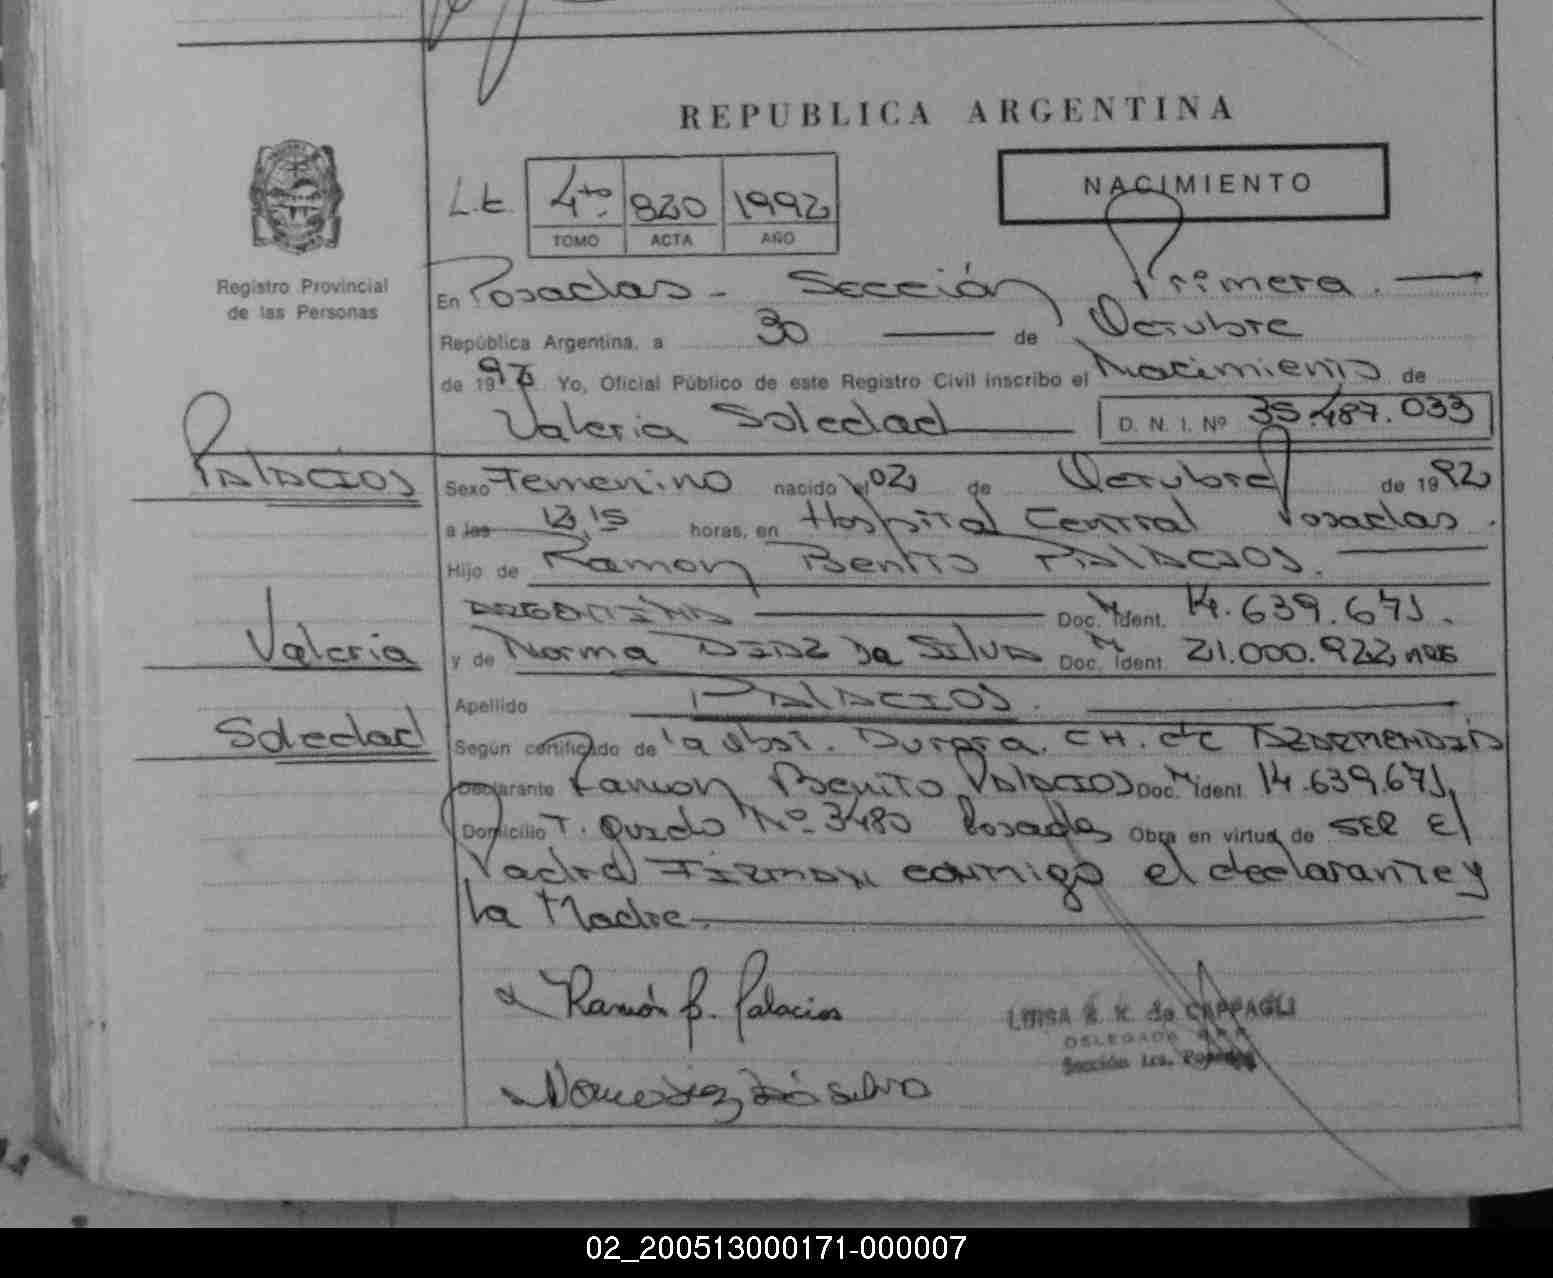 REPUBLICA ARGENTINA
NACIMIENTO
L.E. 4to. 820 1992
TOMO ACTA AÑO
Registro Provincial
de las Personas
En Posadas - Sección Primera.
República Argentina, a 30 de Octubre
de 1992 Yo, Oficial Público de este Registro Civil inscribo el Nacimiento de
Valeria Soledad D. N. I. Nº 35.487.033
PALACIOS
Sexo Femenino nacido el 02 de Octubre de 1992
a las 12,15 horas, en Hospital Central Posadas.
Hijo de Ramon Benito PALACIOS.
ARGENTINO Doc. Ident. 14.639.671.
Valeria
y de Norma DIAZ Da SILVA Doc. Ident. 21.000.922
Apellido PALACIOS.
Soledad
Según certificado de la Obst. CH. de
Declarante Ramon Benito PALACIOS Doc. Ident. 14.639.671,
Domicilio T. Nº 3480 Posadas Obra en virtud de SER El
Padre FIRMAN conmigo el declarante y
La Madre.
Ramón B. Palacios
LUISA R. K. de CAPPAGLI
DELEGADA
Sección 1ra. Posadas
Da Silva
02_200513000171-000007